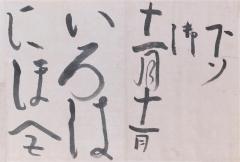 御
十一月十一日
いろは
にほへと